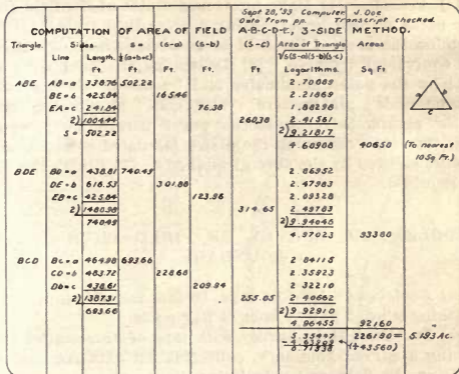 Sept 28, '33 Computer J. Doe
Data from pp. Transcript checked.
COMPUTATION OF AREA OF FIELD A-B-C-D-E, 3-SIDE METHOD.
Triangle. Sides. s= (s-a) (s-b) (s-c) Area of Triangle Areas
Line Length. ½(a+b+c) √s(s-a)(s-b)(s-c)
Ft. Ft. Ft. Ft. Ft. Logarithms. Sq Ft.
ABE AB=a 338.76 502.22 2.70089
BE=b 425.84 165.46 2.21869
EA=c 241.84 76.38 1.88298
2)1004.44 260.38 2.41561
S= 502.22 2)9.21817
4.60908 40650 (To nearest
10 Sq Ft.)
BDE BD=a 438.61 740.49 2.86952
DE=b 616.53 301.88 2.47983
EB=c 425.84 123.96 2.09328
2)1480.98 314.65 2.49783
740.49 2)9.94046
4.97023 93380
BCD BC=a 464.98 693.66 2.84115
CD=b 483.72 228.68 2.35923
DB=c 438.61 209.94 2.32210
2)1387.31 255.05 2.40662
693.66 2)9.92910
4.96455 92160
5.35447 226190 = 5.193 Ac.
4.63909 (÷43560)
0.71538
a
b
c